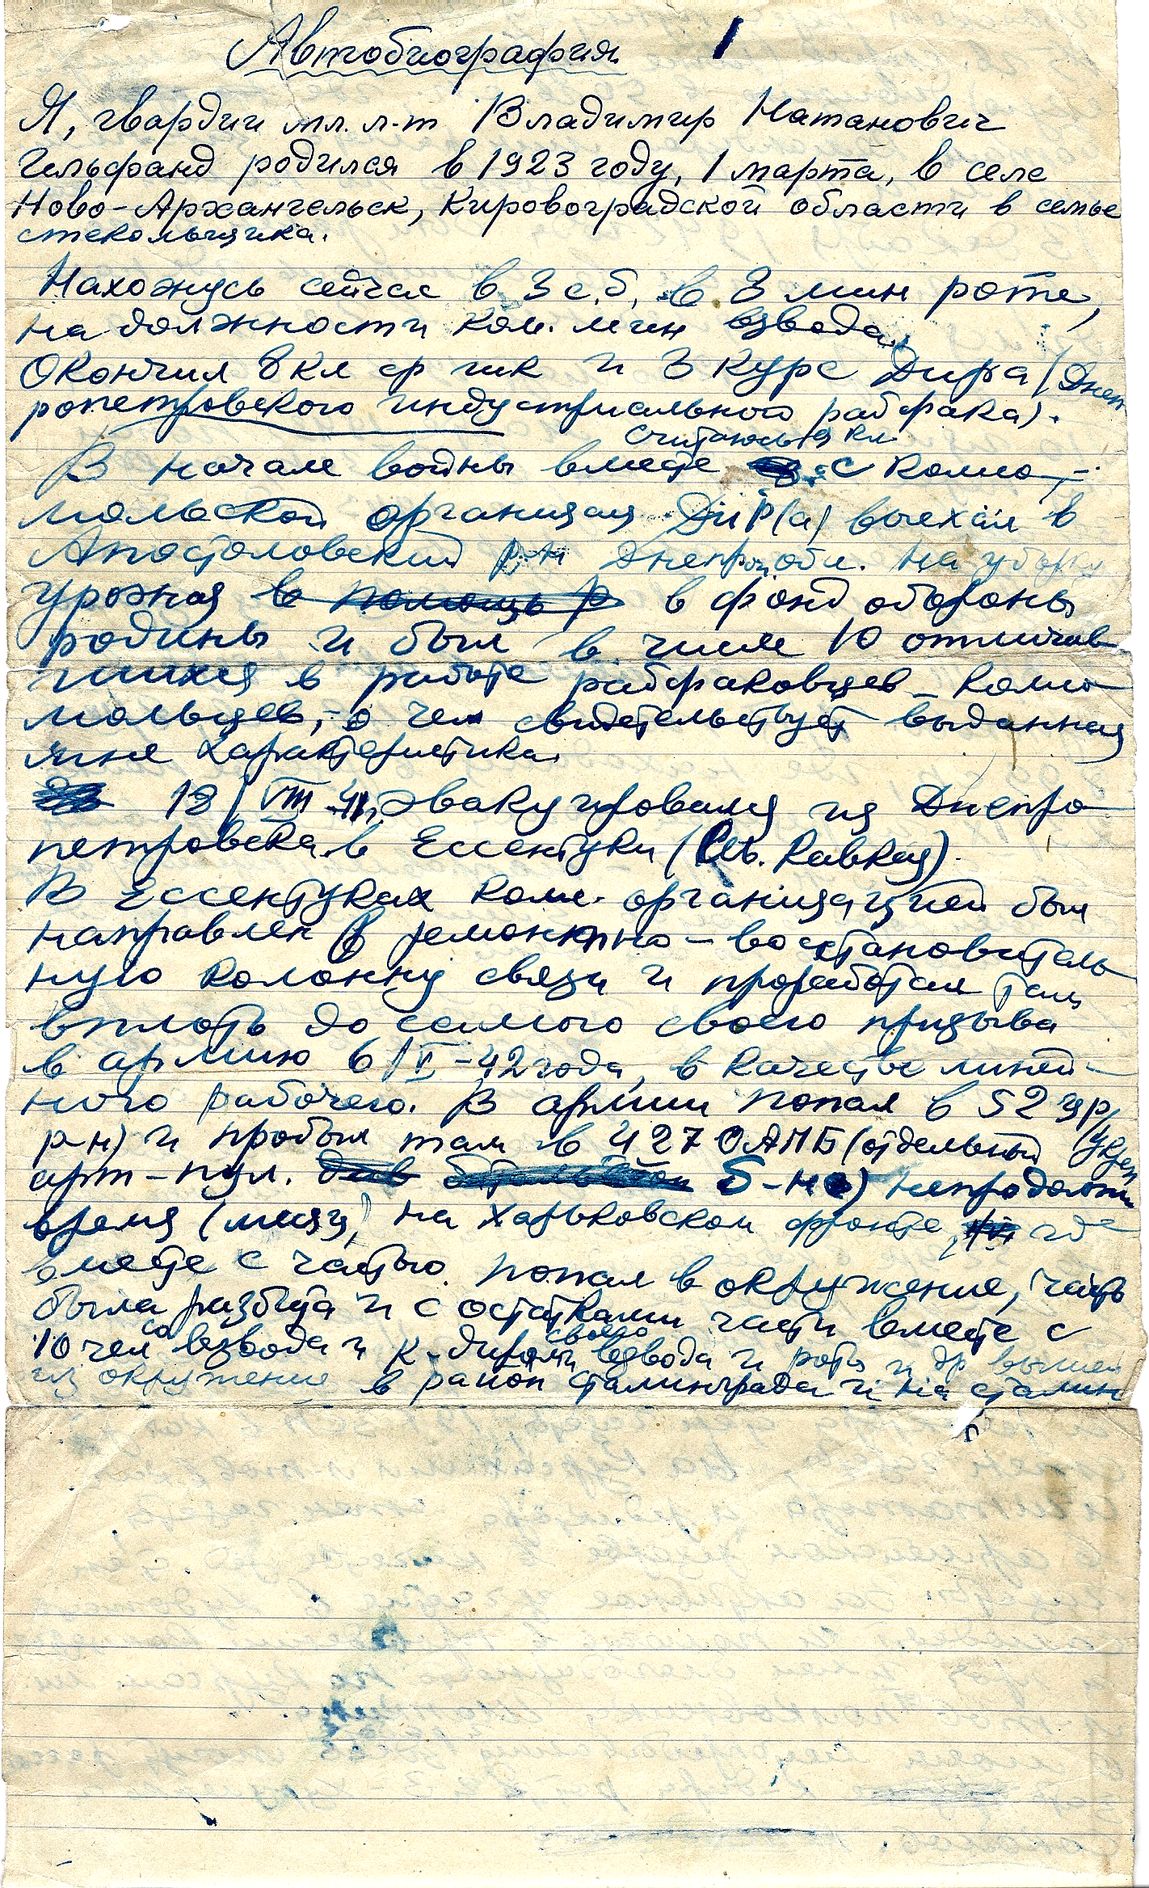 Автобиография. 1
Я, гвардии мл. л-т Владимир Натанович
Гельфанд родился в 1923 году, 1 марта, в селе
Ново-Архангельск, Кировоградской области в семье
стекольщика.
Нахожусь сейчас в 3 с.б. в 3 мин роте,
на должности ком. мин взвода.
Окончил 8 кл ср шк и 3 курс Дирфа (Днеп
ропетровского индустриального рабфака).
В начале войны вместе с комсо-
мольской организац ДИР(а) выехал в
Апостоловский р-н Днепр. обл. на уборку
урожая в помощь р в фонд обороны
родины и был в числе 10 отличив
шихся в работе рабфаковцев - комсо
мольцев, - о чем свидетельствует выданная
мне характеристика.
18/VIII 41, эвакуировался из Днепро
петровска в Ессентуки (Св. Кавказ).
В Ессентуках комс. организацией был
направлен в ремонтно-восстановитель
ную колонну связи и проработал там
вплоть до самого своего призыва
в армию 6/V-42 года, в качестве линей-
ного рабочего. В армии попал в 52 ур (укреп
р-н) и пробыл там в 427 ОАПБ (отдельный
арт-пул. б-н) непродолжи
время (месяц) на харьковском фронте, где
вместе с частью попал в окружение, часть
была разбита и с остатками части вместе с
10 чел со взвода и к-диром своего взвода и роты и др вышел
из окружение в район Сталинграда и на сталин